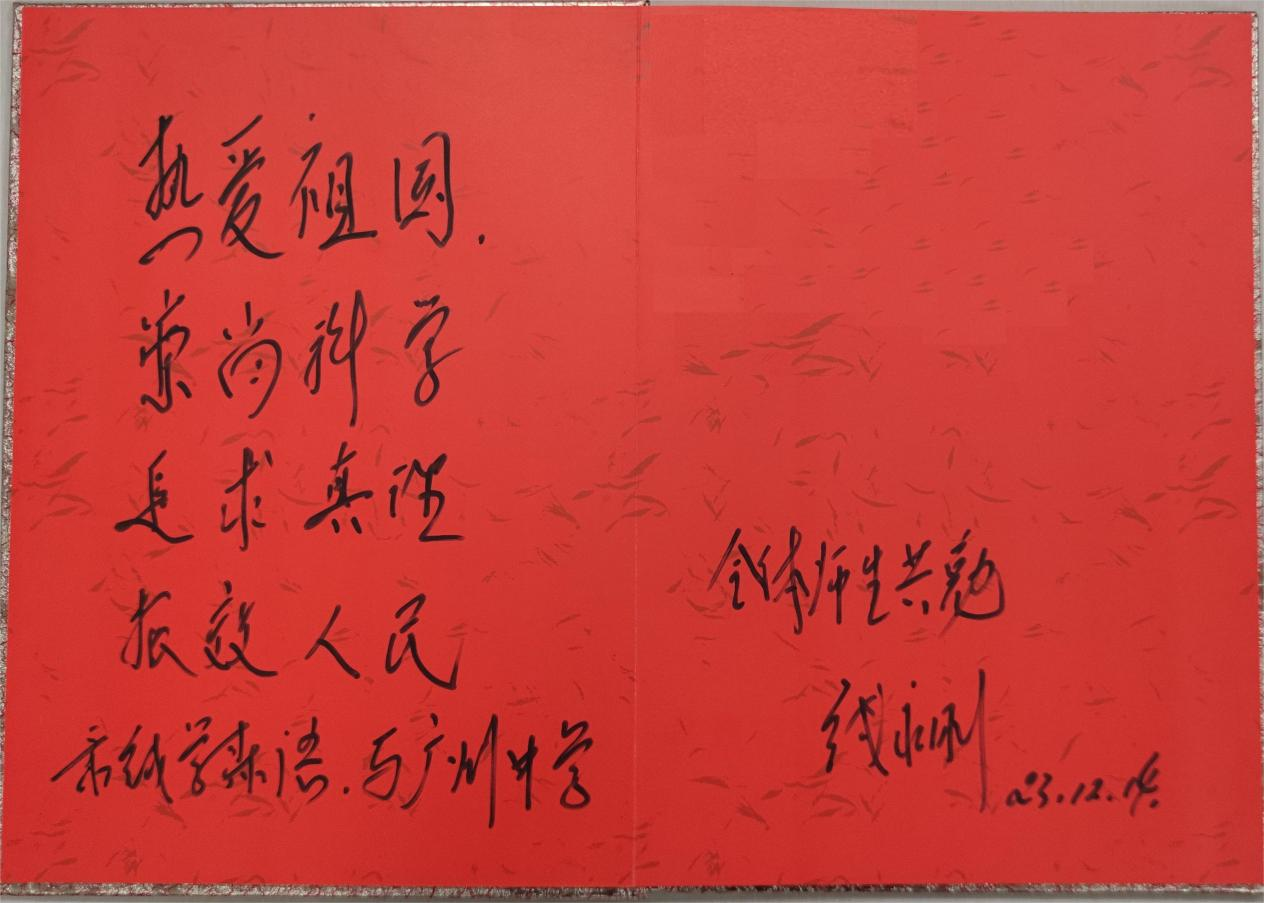 热爱祖国.
崇尚科学
追求真理
报效人民
录钱学森语.与广州中学
全体师生共勉
钱永刚
23.12.14.